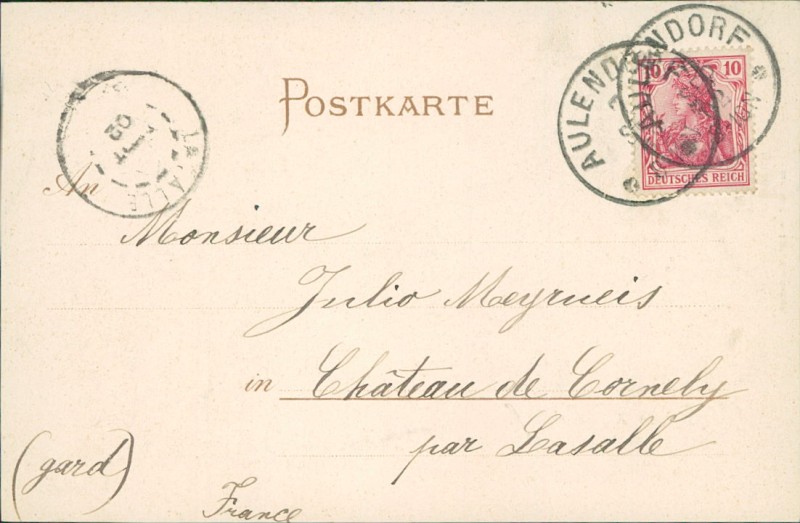 POSTKARTE
AULENDORF
AULENDORF
10 10
DEUTSCHES REICH
LASALLE
02
An
Monsieur
Julio Meyrueis
in Château de Cornely
par Lasalle
(gard)
France